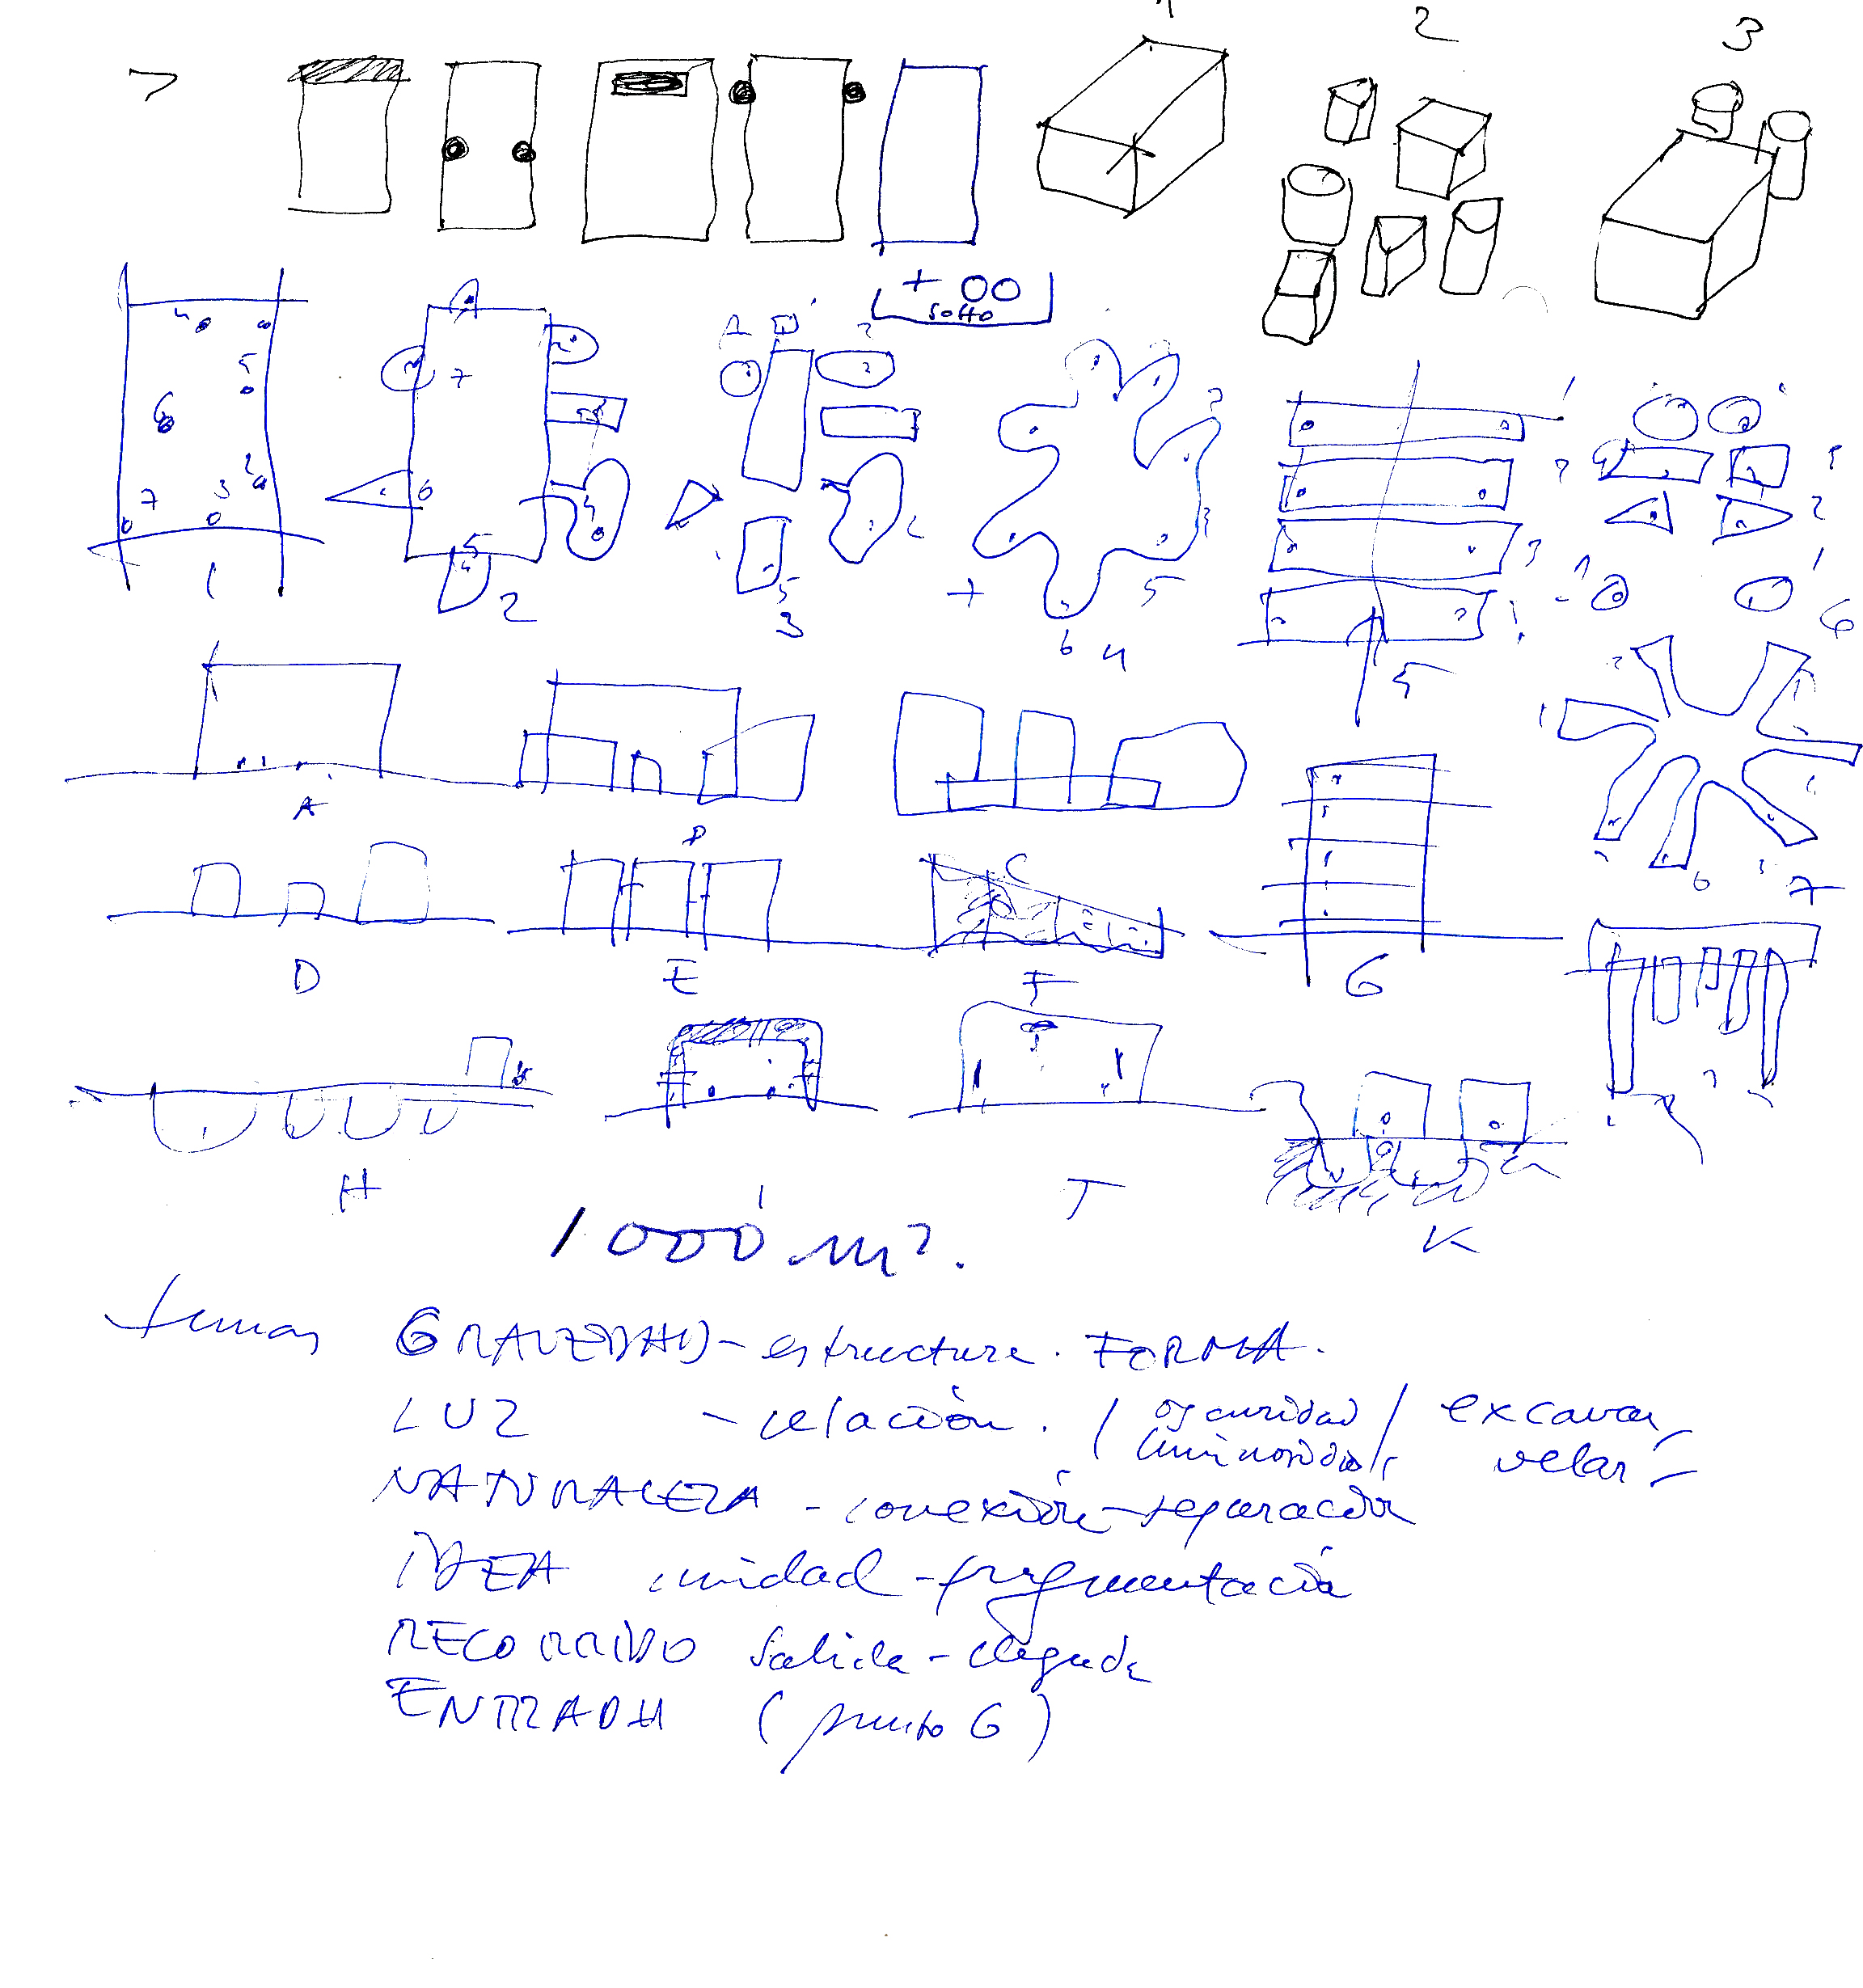 1 2 3
+ 00
sotto
1 2 3 4 5 6
7
A
C
D E F G
H T K
1000 m².
temas GRAVEDAD - estructura. FORMA.
LUZ - relación. / oscuridad / excavar
luminosidad velar -
NATURALEZA - conexión - separación
IDEA unidad - fragmentación
RECORRIDO salida - llegada
ENTRADA (punto G)